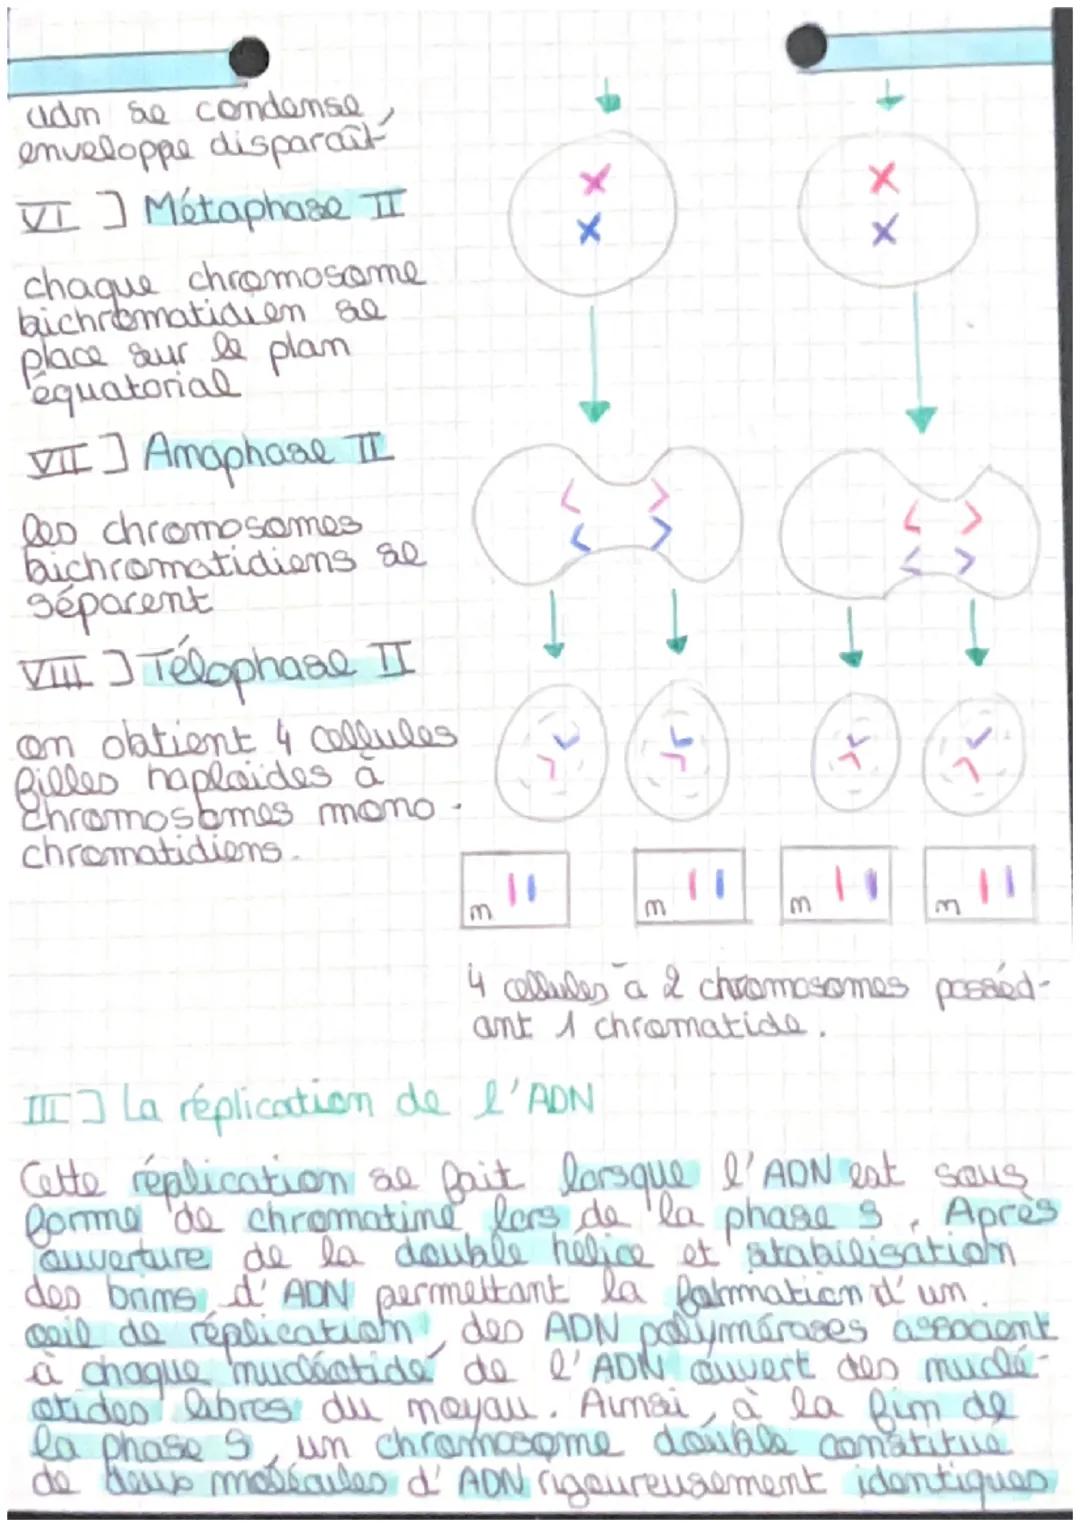 adn se condense,
enveloppe disparaît
VI ] Métaphase II
chaque chromosome
bichromatidien se
place sur le plan
équatorial
VII ] Anaphase II
les chromosomes
bichromatidiens se
séparent
VIII ] Télophase II
on obtient 4 cellules
filles haploïdes à
chromosomes mono-
chromatidiens.
n
n
n
n
4 cellules à 2 chromosomes posséd-
ant 1 chromatide.
III ] La réplication de l'ADN
Cette réplication se fait lorsque l'ADN est sous
forme de chromatine lors de la phase S. Après
ouverture de la double hélice et stabilisation
des brins d'ADN permettant la formation d'un
oeil de réplication, des ADN polymérases associent
à chaque nucléotide de l'ADN ouvert des nuclé-
otides libres du noyau. Ainsi, à la fin de
la phase S, un chromosome double constitue
de deux molécules d'ADN rigoureusement identiques